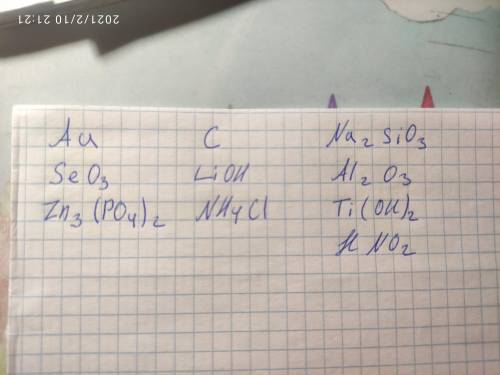 2021/2/10 21:21
Au C Na₂SiO₃
SeO₃ LiOH Al₂O₃
Zn₃(PO₄)₂ NH₄Cl Ti(OH)₂
HNO₂